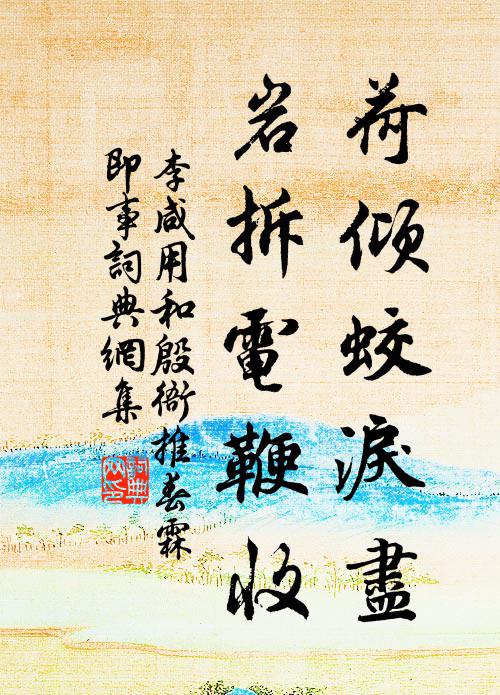 荷傾蛟淚盡
岩拆電鞭收
李咸用和殷衙推春霖
即事詞典網集